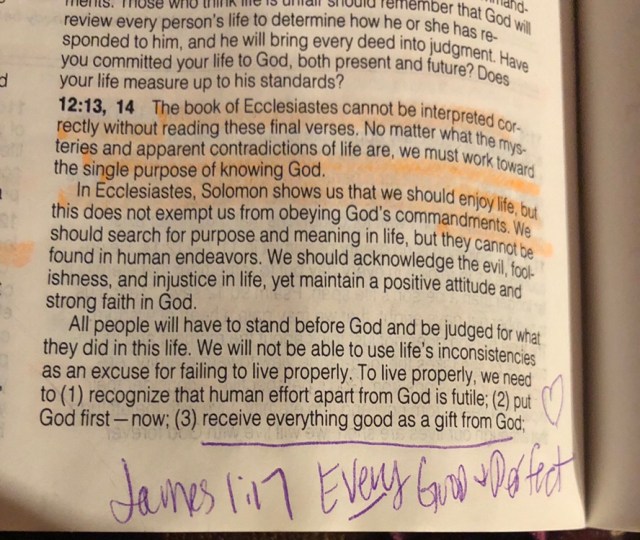 ments. Those who think life is unfair should remember that God will
review every person's life to determine how he or she has re-
sponded to him, and he will bring every deed into judgment. Have
you committed your life to God, both present and future? Does
your life measure up to his standards?
12:13, 14 The book of Ecclesiastes cannot be interpreted cor-
rectly without reading these final verses. No matter what the mys-
teries and apparent contradictions of life are, we must work toward
the single purpose of knowing God.
In Ecclesiastes, Solomon shows us that we should enjoy life, but
this does not exempt us from obeying God's commandments. We
should search for purpose and meaning in life, but they cannot be
found in human endeavors. We should acknowledge the evil, fool-
ishness, and injustice in life, yet maintain a positive attitude and
strong faith in God.
All people will have to stand before God and be judged for what
they did in this life. We will not be able to use life's inconsistencies
as an excuse for failing to live properly. To live properly, we need
to (1) recognize that human effort apart from God is futile; (2) put
God first—now; (3) receive everything good as a gift from God;
James 1:17 Every Good & Perfect